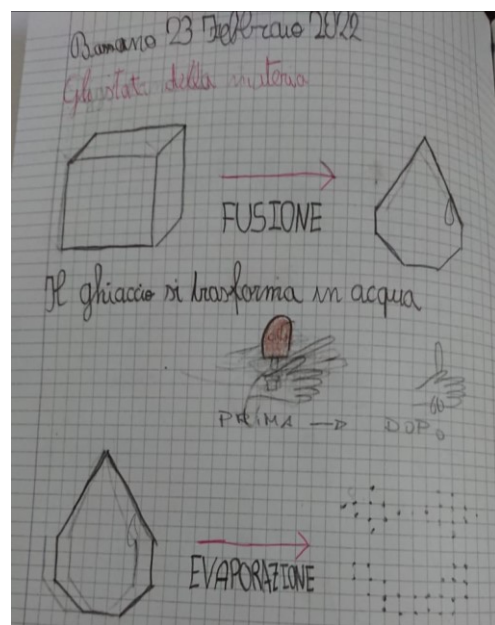 Bamano 23 Febbraio 2022
Gli stati della materia
FUSIONE
Il ghiaccio si trasforma in acqua
PRIMA → DOPO
EVAPORAZIONE